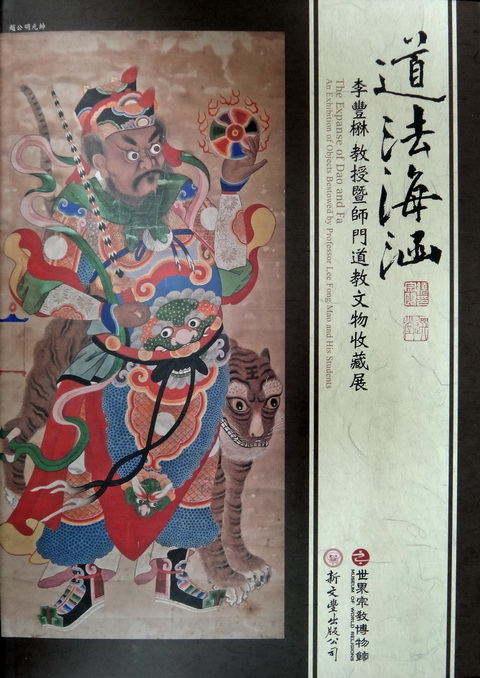 趙公明元帥
道法海涵
李豐楙教授暨師門道教文物收藏展
The Expanse of Dao and Fa
An Exhibition of Objects Bestowed by Professor Lee Fong Mao and His Students
世界宗教博物館
MUSEUM OF WORLD RELIGIONS
新文豐出版公司